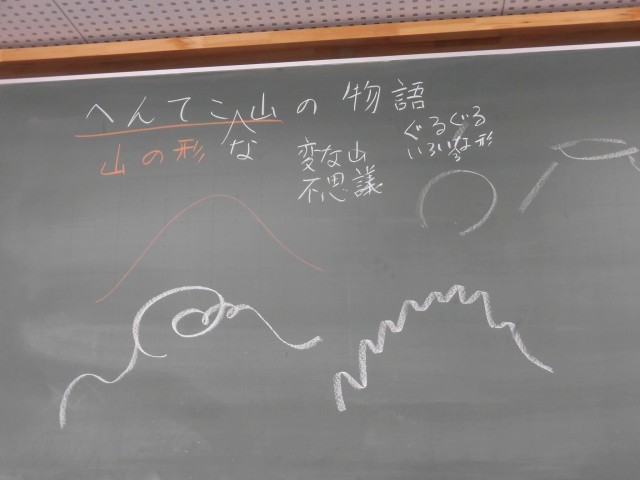 へんてこな山の物語
山の形
変な山
不思議
ぐるぐる
いろいろな形